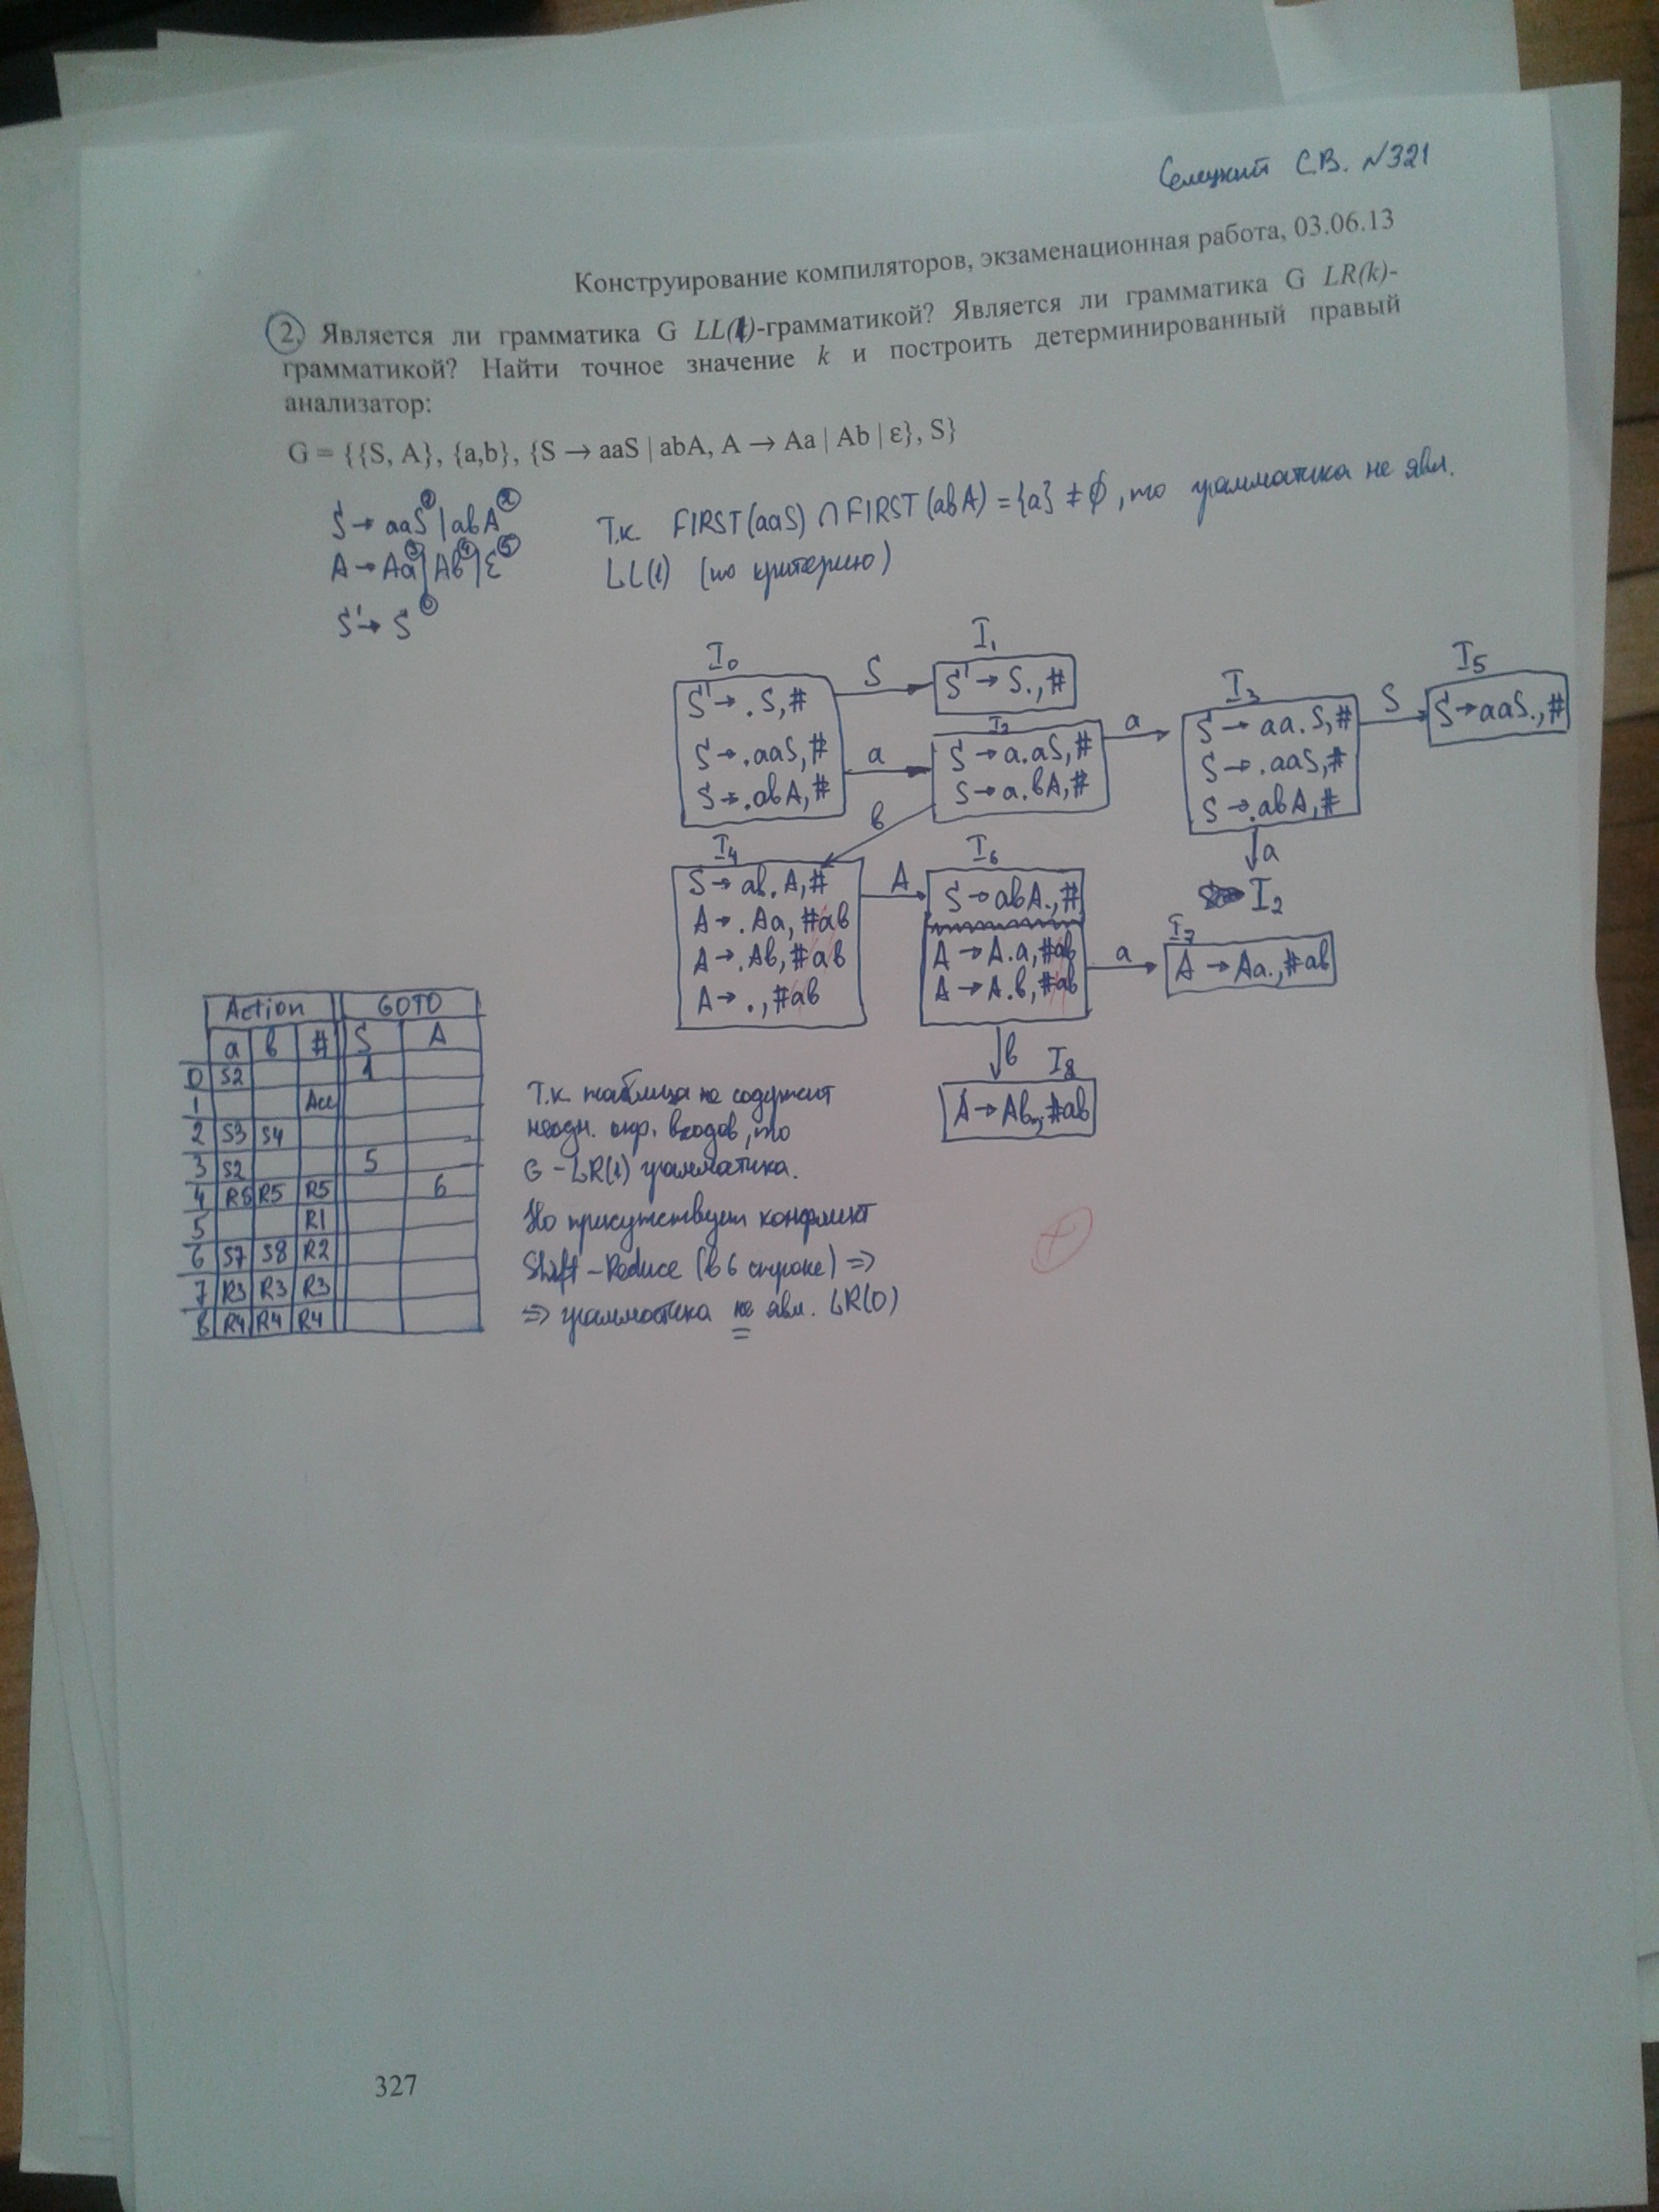 Селецкий С.В. №321
Конструирование компиляторов, экзаменационная работа, 03.06.13
2. Является ли грамматика G LL(1)-грамматикой? Является ли грамматика G LR(k)-
грамматикой? Найти точное значение k и построить детерминированный правый
анализатор:
G = {{S, A}, {a,b}, {S → aaS | abA, A → Aa | Ab | ε}, S}
S → aaS① | abA②
A → Aa③ | Ab④ | ε⑤
S' → S⓪
Т.к. FIRST(aaS) ∩ FIRST(abA) = {a} ≠ ∅, то грамматика не явл.
LL(1) (по критерию)
I₀
S' → .S, #
S → .aaS, #
S → .abA, #
S
a
I₁
S' → S., #
I₂
S → a.aS, #
S → a.bA, #
a
b
I₃
S → aa.S, #
S → .aaS, #
S → .abA, #
S
a
I₂
I₅
S → aaS., #
I₄
S → ab.A, #
A → .Aa, #ab
A → .Ab, #ab
A → ., #ab
A
I₆
S → abA., #
A → A.a, #ab
A → A.b, #ab
a
b
I₇
A → Aa., #ab
I₈
A → Ab., #ab
Action GOTO
a b # S A
0 S2 1
1 Acc
2 S3 S4
3 S2 5
4 R5 R5 R5 6
5 R1
6 S7 S8 R2
7 R3 R3 R3
8 R4 R4 R4
Т.к. таблица не содержит
неодн. опр. входов, то
G - LR(1) грамматика.
Но присутствует конфликт
Shift-Reduce (в 6 строке) =>
=> грамматика не явл. LR(0)
+
327